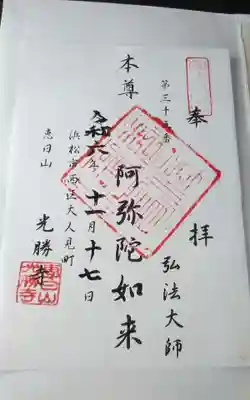 奉拝
第三十五番
弘法大師
本尊
阿弥陀如来
令和六年十一月十七日
浜松市西区大人見町
恵日山
光勝寺